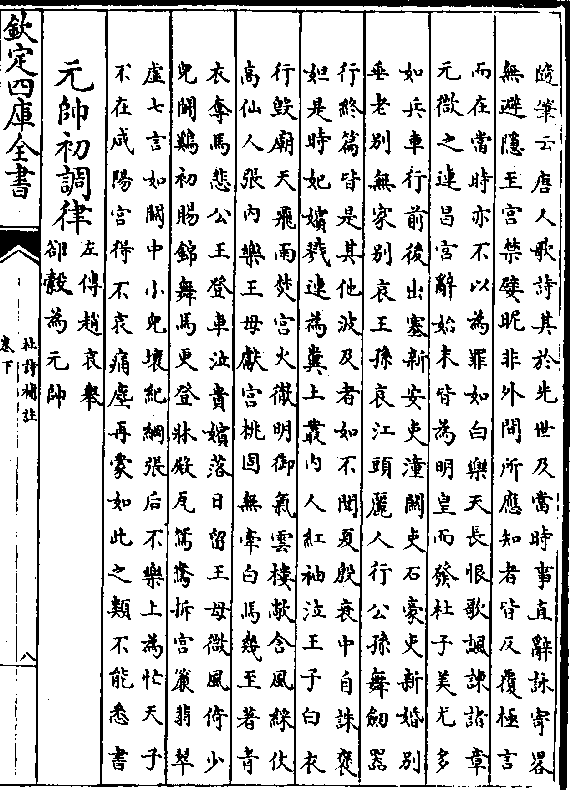 隨筆云唐人歌詩其於先世及當時事直辭詠寄畧
無避隱至宮禁嬖昵非外間所應知者皆反覆極言
而在當時亦不以為罪如白樂天長恨歌諷諫諸章
元微之連昌宮辭始末皆為明皇而發杜子美尤多
如兵車行前後出塞新安吏潼關吏石豪吏新婚别
垂老别無家别哀王孫哀江頭麗人行公孫舞劒器
行終篇皆是其他波及者如不聞夏殷衰中自誅褒
妲是時妃嬪戮連為糞土叢内人紅袖泣王子白衣
行毁廟天飛雨焚宮火徹明御氣雲樓敞含風綵仗
高仙人張内樂王母獻宮桃固無牽白馬幾至著青
衣奪馬悲公王登車泣貴嬪落日留王母微風倚少
兒鬬鷄初賜錦舞馬更登牀殿瓦鴛鴦拆宮簾翡翠
虚七言如關中小兒壞紀綱張后不樂上為忙天子
不在咸陽宮得不哀痛塵再蒙如此之類不能悉書
元帥初調律
左傳趙衰舉
郤縠為元帥
欽定四庫全書
杜詩補註
卷下
八